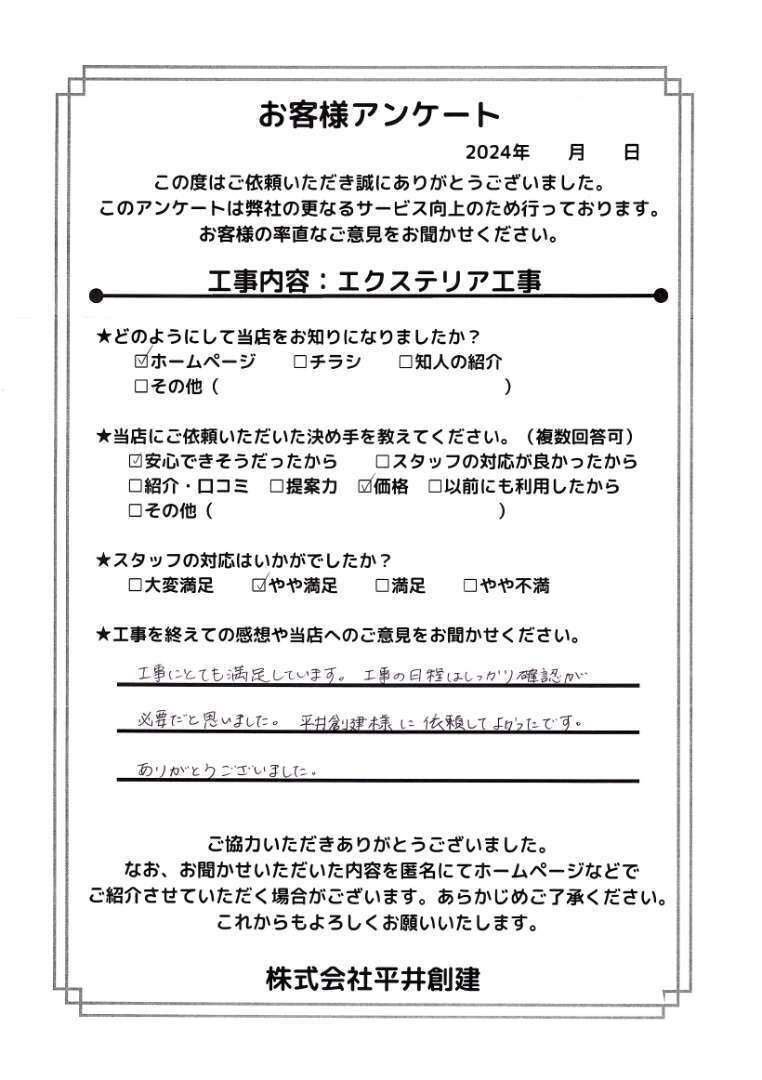 お客様アンケート
2024年　　月　　日
この度はご依頼いただき誠にありがとうございました。
このアンケートは弊社の更なるサービス向上のため行っております。
お客様の率直なご意見をお聞かせください。
工事内容：エクステリア工事
★どのようにして当店をお知りになりましたか？
☑ホームページ　　□チラシ　　□知人の紹介
□その他（　　　　　　　　　　　　　　　　）
★当店にご依頼いただいた決め手を教えてください。（複数回答可）
☑安心できそうだったから　　□スタッフの対応が良かったから
□紹介・口コミ　□提案力　☑価格　□以前にも利用したから
□その他（　　　　　　　　　　　　　　　　）
★スタッフの対応はいかがでしたか？
□大変満足　　☑やや満足　　□満足　　□やや不満
★工事を終えての感想や当店へのご意見をお聞かせください。
工事にとても満足しています。工事の日程はしっかり確認が
必要だと思いました。平井創建様に依頼してよかったです。
ありがとうございました。
ご協力いただきありがとうございました。
なお、お聞かせいただいた内容を匿名にてホームページなどで
ご紹介させていただく場合がございます。あらかじめご了承ください。
これからもよろしくお願いいたします。
株式会社平井創建